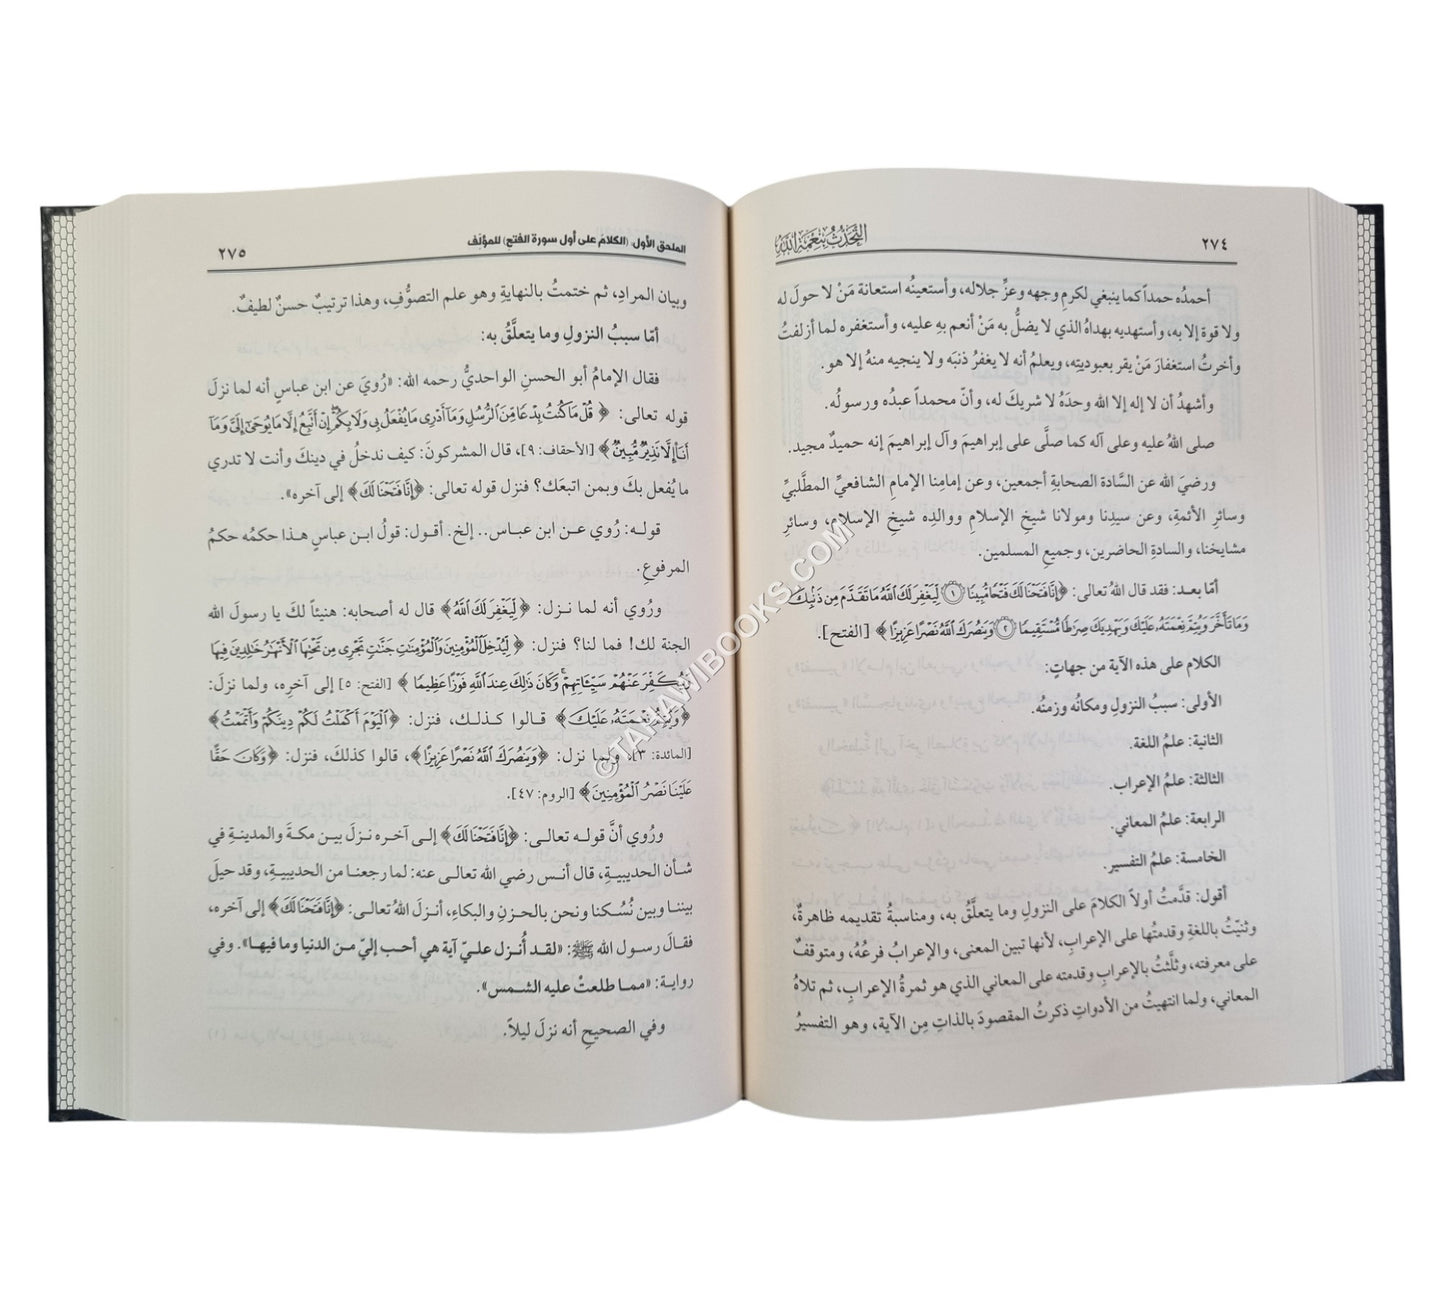 ٢٧٤
التحدث بنعمة الله
أحمدُه حمداً كما ينبغي لكرمِ وجهه وعزِّ جلاله، وأستعينُه استعانة مَنْ لا حولَ له
ولا قوة إلا به، وأستهديه بهداهُ الذي لا يضلُّ به مَنْ أنعم بهِ عليه، وأستغفره لما أزلفتُ
وأخرتُ استغفارَ مَنْ يقر بعبوديته، ويعلمُ أنه لا يغفرُ ذنبَه ولا ينجيه منهُ إلا هو.
وأشهدُ أن لا إله إلا الله وحدَهُ لا شريكَ له، وأنّ محمداً عبدُه ورسولُه.
صلى اللهُ عليه وعلى آله كما صلَّى على إبراهيمَ وآل إبراهيمَ إنه حميدٌ مجيد.
ورضيَ الله عن السَّادة الصحابةِ أجمعين، وعن إمامِنا الإمامِ الشافعيِّ المطَّلبيِّ
وسائرِ الأئمةِ، وعن سيدِنا ومولانا شيخِ الإسلامِ ووالدِه شيخِ الإسلامِ، وسائرِ
مشايخنا، والسادةِ الحاضرين، وجميعِ المسلمين.
أمّا بعد: فقد قال اللهُ تعالى: ﴿إِنَّا فَتَحْنَا لَكَ فَتْحًا مُّبِينًا ۝١ لِّيَغْفِرَ لَكَ اللَّهُ مَا تَقَدَّمَ مِن ذَنۢبِكَ
وَمَا تَأَخَّرَ وَيُتِمَّ نِعْمَتَهُۥ عَلَيْكَ وَيَهْدِيَكَ صِرَٰطًا مُّسْتَقِيمًا ۝٢ وَيَنصُرَكَ اللَّهُ نَصْرًا عَزِيزًا﴾ [الفتح].
الكلام على هذه الآية من جهاتٍ:
الأولى: سببُ النزولِ ومكانُه وزمنُه.
الثانية: علمُ اللغة.
الثالثة: علمُ الإعراب.
الرابعة: علمُ المعاني.
الخامسة: علمُ التفسير.
أقول: قدَّمتُ أولاً الكلامَ على النزولِ وما يتعلَّقُ به، ومناسبةُ تقديمه ظاهرةٌ،
وثنيّتُ باللغةِ وقدمتُها على الإعرابِ، لأنها تبين المعنى، والإعرابُ فرعُهُ، ومتوقفٌ
على معرفته، وثلَّثتُ بالإعرابِ وقدمته على المعاني الذي هو ثمرةُ الإعرابِ، ثم تلاهُ
المعاني، ولما انتهيتُ من الأدواتِ ذكرتُ المقصودَ بالذاتِ مِن الآية، وهو التفسيرُ
الملحق الأول: (الكلام على أول سورة الفتح) للمؤلف
٢٧٥
وبيان المرادِ، ثم ختمتُ بالنهايةِ وهو علم التصوُّفِ، وهذا ترتيبٌ حسنٌ لطيفٌ.
أمّا سببُ النزولِ وما يتعلَّقُ به:
فقال الإمامُ أبو الحسنِ الواحديُّ رحمه الله: «رُويَ عن ابن عباسٍ أنه لما نزل
قوله تعالى: ﴿قُلْ مَا كُنتُ بِدْعًا مِّنَ الرُّسُلِ وَمَآ أَدْرِى مَا يُفْعَلُ بِى وَلَا بِكُمْ إِنْ أَتَّبِعُ إِلَّا مَا يُوحَىٰٓ إِلَىَّ وَمَآ
أَنَا۠ إِلَّا نَذِيرٌ مُّبِينٌ﴾ [الأحقاف: ٩]، قال المشركونَ: كيف ندخلُ في دينكَ وأنت لا تدري
ما يُفعل بكَ وبمن اتبعَك؟ فنزل قوله تعالى: ﴿إِنَّا فَتَحْنَا لَكَ﴾ إلى آخره».
قوله: رُوي عن ابن عباس.. إلخ. أقول: قولُ ابن عباسٍ هذا حكمُه حكمُ
المرفوعِ.
ورُوي أنه لما نزل: ﴿لِّيَغْفِرَ لَكَ اللَّهُ﴾ قال له أصحابه: هنيئاً لكَ يا رسولَ الله
الجنة لك! فما لنا؟ فنزل: ﴿لِّيُدْخِلَ الْمُؤْمِنِينَ وَالْمُؤْمِنَٰتِ جَنَّٰتٍ تَجْرِى مِن تَحْتِهَا الْأَنْهَٰرُ خَٰلِدِينَ فِيهَا
وَيُكَفِّرَ عَنْهُمْ سَيِّـَٔاتِهِمْ وَكَانَ ذَٰلِكَ عِندَ اللَّهِ فَوْزًا عَظِيمًا﴾ [الفتح: ٥] إلى آخرِه، ولما نزلَ:
﴿وَيُتِمَّ نِعْمَتَهُۥ عَلَيْكَ﴾ قالوا كذلك، فنزل: ﴿الْيَوْمَ أَكْمَلْتُ لَكُمْ دِينَكُمْ وَأَتْمَمْتُ﴾
[المائدة: ٣]، ولما نزل: ﴿وَيَنصُرَكَ اللَّهُ نَصْرًا عَزِيزًا﴾، قالوا كذلكَ، فنزل: ﴿وَكَانَ حَقًّا
عَلَيْنَا نَصْرُ الْمُؤْمِنِينَ﴾ [الروم: ٤٧].
ورُوي أنَّ قوله تعالى: ﴿إِنَّا فَتَحْنَا لَكَ﴾ إلى آخره نزلَ بين مكةَ والمدينةِ في
شأن الحديبيةِ، قال أنس رضي الله تعالى عنه: لما رجعنا من الحديبيةِ، وقد حيلَ
بيننا وبين نُسُكنا ونحن بالحزنِ والبكاءِ، أنزلَ اللهُ تعالى: ﴿إِنَّا فَتَحْنَا لَكَ﴾ إلى آخره،
فقالَ رسول الله ﷺ: «لقد أُنزل عليّ آية هي أحب إليّ من الدنيا وما فيها». وفي
رواية: «مما طلعتْ عليه الشمس».
وفي الصحيحِ أنه نزلَ ليلاً.
©TAHAWIBOOKS.COM